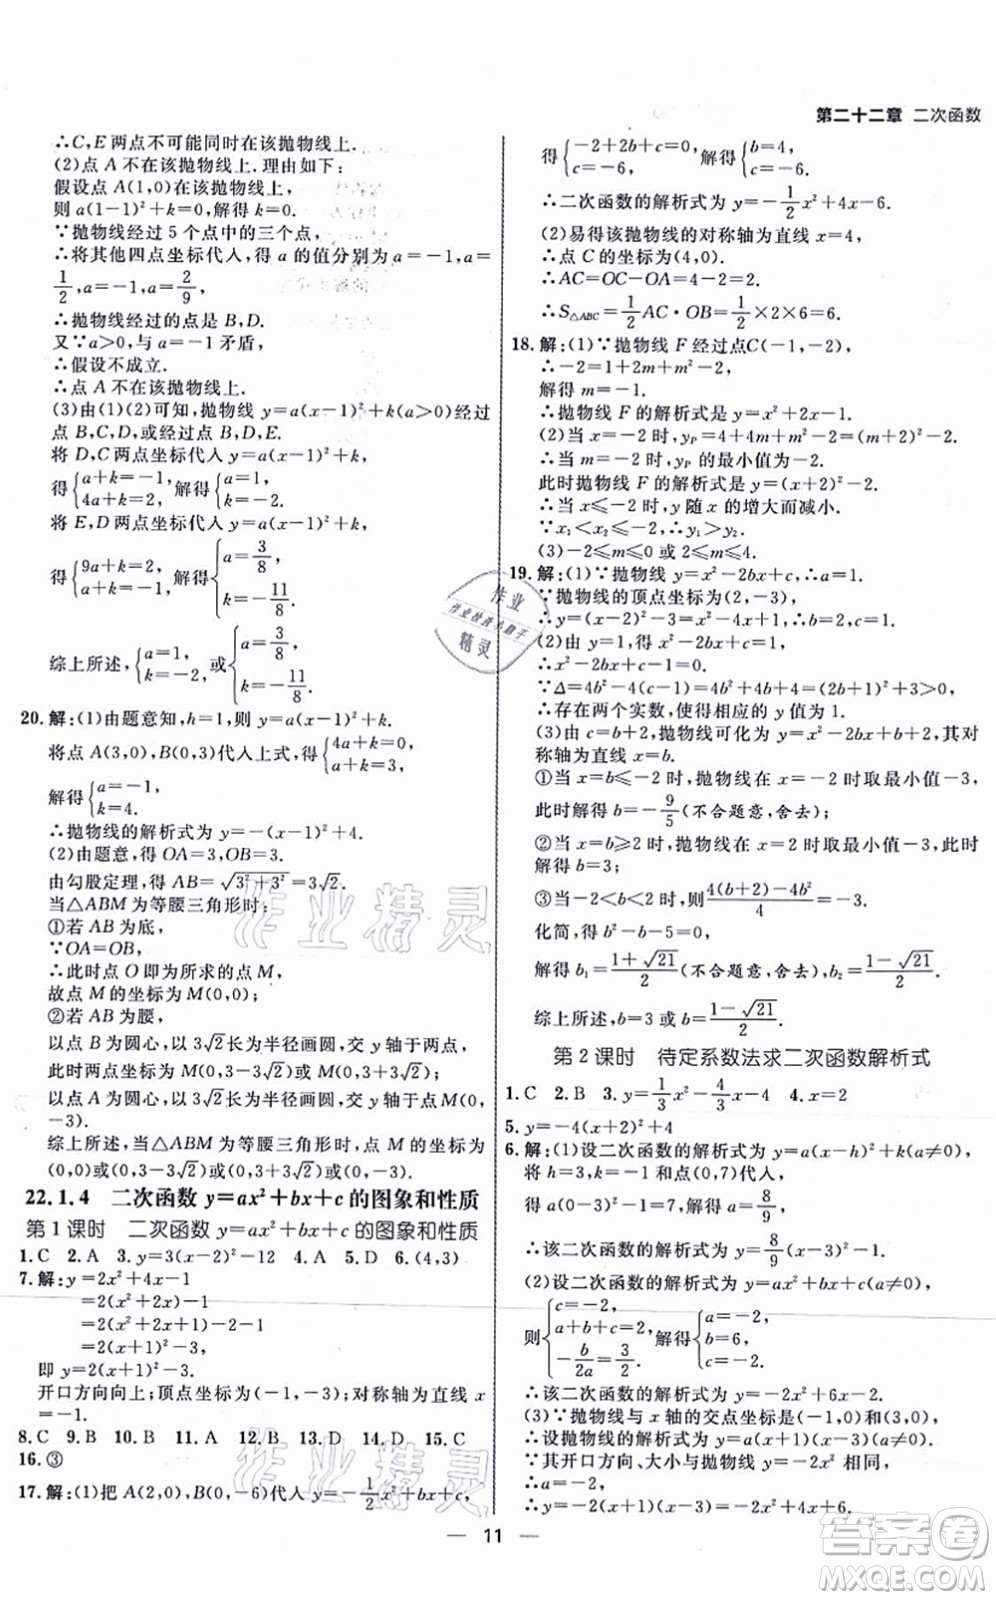 第二十二章 二次函数
∴C,E两点不可能同时在该抛物线上.
(2)点A不在该抛物线上.理由如下:
假设点A(1,0)在该抛物线上,
则a(1-1)²+k=0,解得k=0.
∵抛物线经过5个点中的三个点,
∴将其他四点坐标代入,得a的值分别为a=-1,a=
1/2,a=-1,a=2/9,
∴抛物线经过的点是B,D.
又∵a>0,与a=-1矛盾,
∴假设不成立.
∴点A不在该抛物线上.
(3)由(1)(2)可知,抛物线y=a(x-1)²+k(a>0)经过
点B,C,D,或经过点B,D,E.
将D,C两点坐标代入y=a(x-1)²+k,
得{a+k=-1, 4a+k=2, 解得{a=1, k=-2.
将E,D两点坐标代入y=a(x-1)²+k,
得{9a+k=2, a+k=-1, 解得{a=3/8, k=-11/8.
综上所述,{a=1, k=-2 或{a=3/8, k=-11/8.
20.解:(1)由题意知,h=1,则y=a(x-1)²+k.
将点A(3,0),B(0,3)代入上式,得{4a+k=0, a+k=3,
解得{a=-1, k=4.
∴抛物线的解析式为y=-(x-1)²+4.
(2)由题意,得OA=3,OB=3.
由勾股定理,得AB=√(3²+3²)=3√2.
当△ABM为等腰三角形时:
①若AB为底,
∵OA=OB,
∴此时点O即为所求的点M,
故点M的坐标为M(0,0);
②若AB为腰,
以点B为圆心,以3√2长为半径画圆,交y轴于两点,
此时两点坐标为M(0,3-3√2)或M(0,3+3√2),
以点A为圆心,以3√2长为半径画圆,交y轴于点M(0,
-3).
综上所述,当△ABM为等腰三角形时,点M的坐标为
(0,0)或(0,3-3√2)或(0,3+3√2)或(0,-3).
22.1.4 二次函数y=ax²+bx+c的图象和性质
第1课时 二次函数y=ax²+bx+c的图象和性质
1.C 2.A 3.y=3(x-2)²-12 4.A 5.D 6.(4,3)
7.解:y=2x²+4x-1
=2(x²+2x)-1
=2(x²+2x+1)-2-1
=2(x+1)²-3,
即y=2(x+1)²-3.
开口方向向上;顶点坐标为(-1,-3);对称轴为直线x
=-1.
8.C 9.B 10.B 11.A 12.B 13.D 14.D 15.C
16.③
17.解:(1)把A(2,0),B(0,-6)代入y=-1/2x²+bx+c,
得{-2+2b+c=0, c=-6, 解得{b=4, c=-6.
∴二次函数的解析式为y=-1/2x²+4x-6.
(2)易得该抛物线的对称轴为直线x=4,
∴点C的坐标为(4,0).
∴AC=OC-OA=4-2=2.
∴S△ABC=1/2AC·OB=1/2×2×6=6.
18.解:(1)∵抛物线F经过点C(-1,-2),
∴-2=1+2m+m²-2,
解得m=-1.
∴抛物线F的解析式是y=x²+2x-1.
(2)当x=-2时,yP=4+4m+m²-2=(m+2)²-2.
∴当m=-2时,yP的最小值为-2.
此时抛物线F的解析式是y=(x+2)²-2.
∴当x≤-2时,y随x的增大而减小.
∵x₁<x₂≤-2,∴y₁>y₂.
(3)-2≤m≤0或2≤m≤4.
19.解:(1)∵抛物线y=x²-2bx+c,∴a=1.
∵抛物线的顶点坐标为(2,-3),
∴y=(x-2)²-3=x²-4x+1.
(2)由y=1,得x²-2bx+c=1.
∴x²-2bx+c-1=0.
∵Δ=4b²-4(c-1)=4b²-4c+4=(2b+1)²+3>0,
∴存在两个实数,使得相应的y值为1.
(3)由c=b+2,则抛物线可化为y=x²-2bx+b+2,其对
称轴为直线x=b.
①当x=b≤-2时,抛物线在x=-2时取最小值-3,
此时解得b=-9/5(不合题意,舍去);
②当x=b≥2时,抛物线在x=2时取最小值-3,此时
解得b=3;
③当-2<b<2时,则(4(b+2)-4b²)/4=-3.
化简,得b²-b-5=0.
解得b₁=(1+√21)/2(不合题意,舍去),b₂=(1-√21)/2.
综上所述,b=3或b=(1-√21)/2.
第2课时 待定系数法求二次函数解析式
1.C 2.B 3.y=1/3x²-4/3x-4 4.x=2
5.y=-4(x+2)²+4
6.解:(1)设二次函数的解析式为y=a(x-h)²+k(a≠0),
将h=3,k=0,点P(0,7)代入,
得a(0-3)²=7,∴a=8/9.
∴该二次函数的解析式为y=8/9(x-3)².
(2)设二次函数的解析式为y=ax²+bx+c(a≠0),
则{c=-2, a+b+c=2, -b/2a=3/2, 解得{a=-2, b=6, c=-2.
∴该二次函数的解析式为y=-2x²+6x-2.
(3)∵抛物线与x轴的交点坐标是(-1,0)和(3,0),
∴设抛物线的解析式为y=a(x+1)(x-3).
∵其开口方向、大小与抛物线y=-2x²相同,
∴y=-2(x+1)(x-3)=-2x²+4x+6.
11
作业精灵
答案圈
MXQE.COM